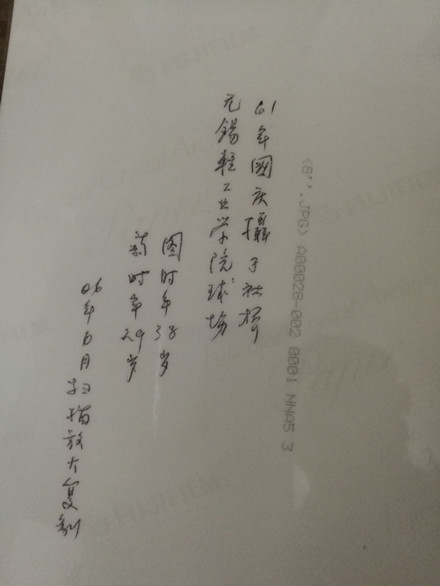 61年國庆攝于社桥
无锡轻工业学院球场
图时年38岁
菊时年29岁
06年6月扫描放大复制
<8''.JPG> A00028-002 0001 NNQ5 3